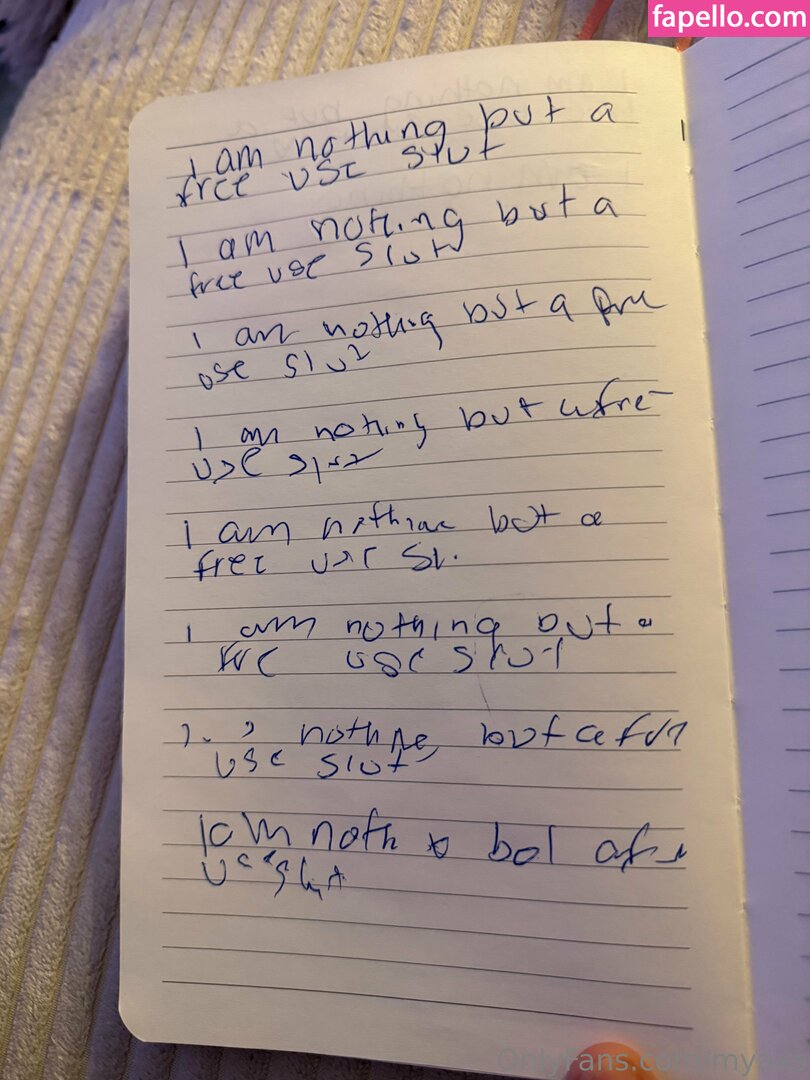 fapello.com
I am nothing but a
free use slut
I am nothing but a
free use slut
I am nothing but a free
use slut
I am nothing but a free
use slut
I am nothing but a
free use
I am nothing but a
use slut
nothing but a
use slut
I am but
OnlyFans.com/